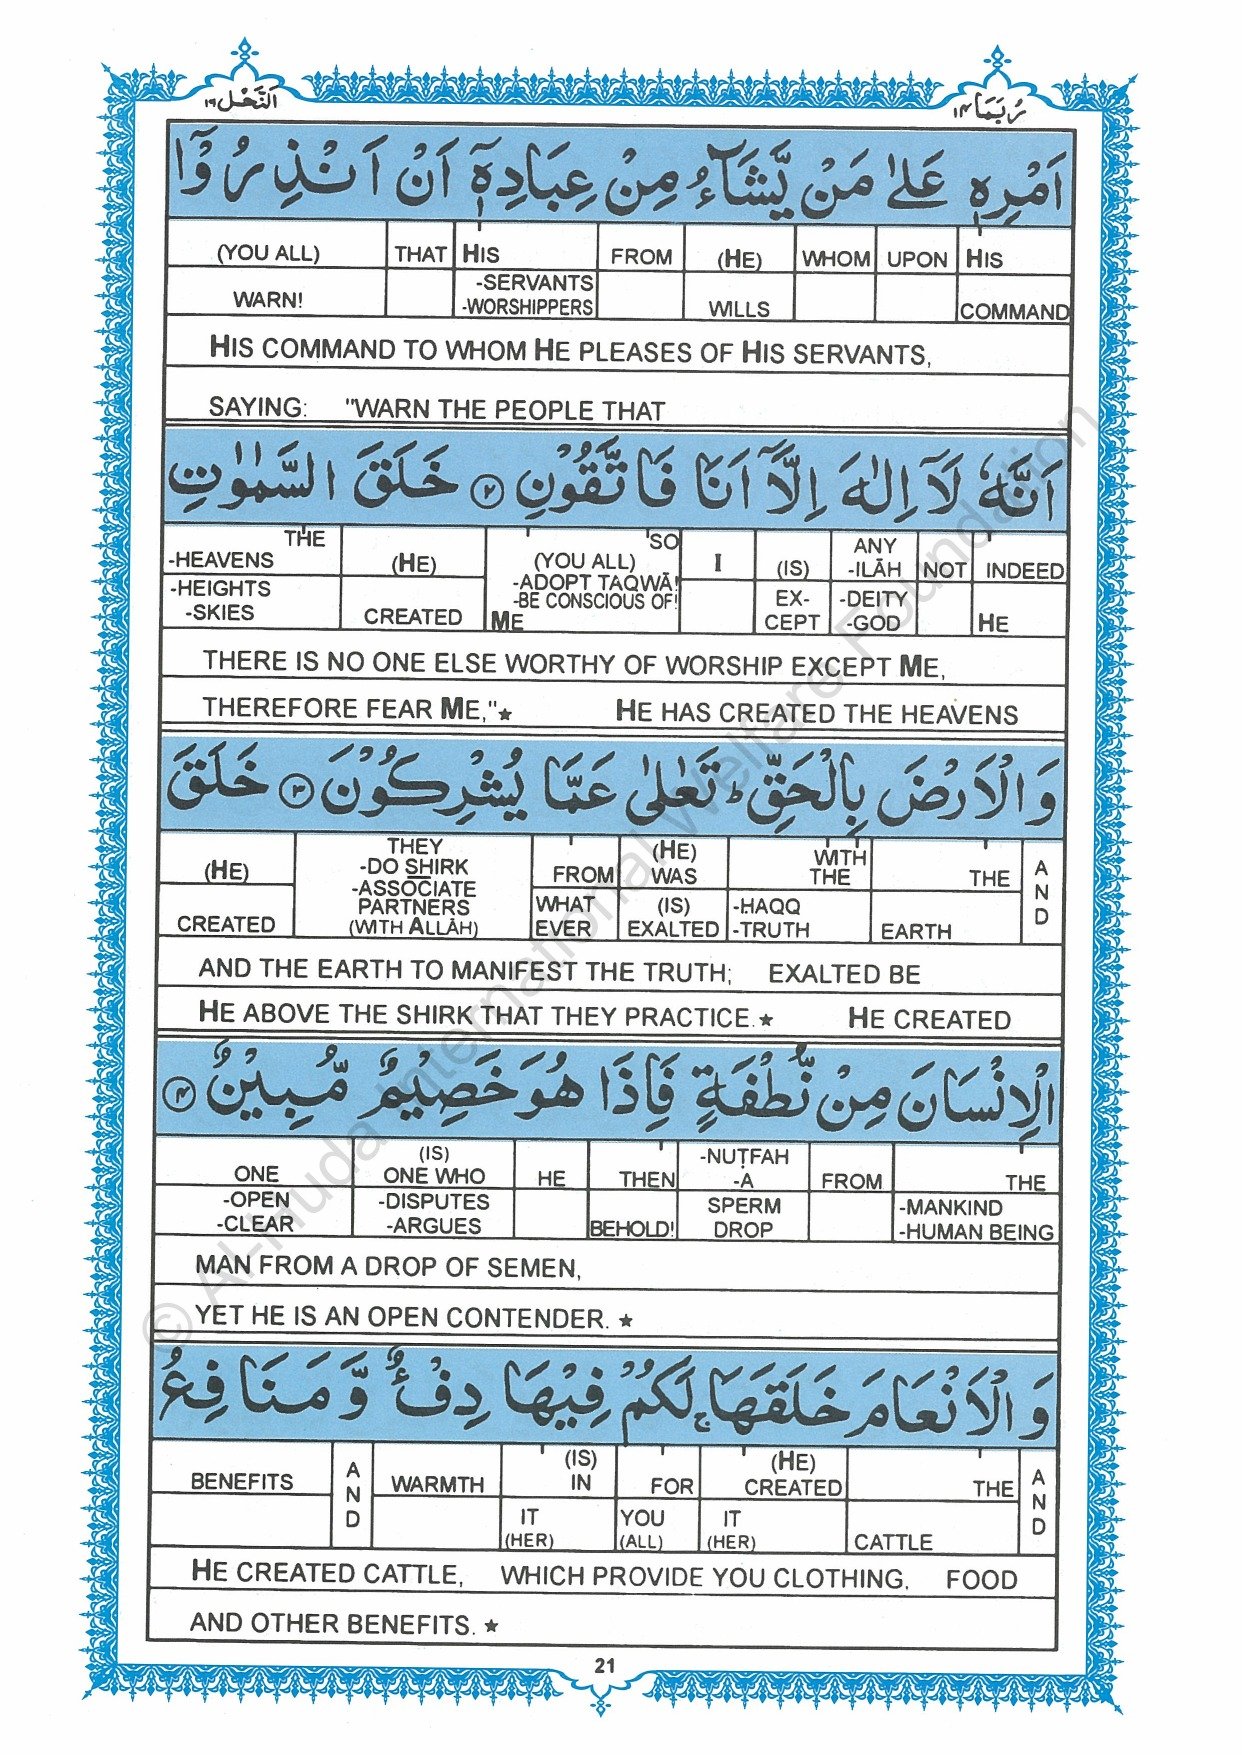 اَلنَّحْل ١٦
رُبَمَا ١٤
اَمْرِهٖ عَلٰى مَنْ يَّشَآءُ مِنْ عِبَادِهٖٓ اَنْ اَنْذِرُوْٓا
(YOU ALL) THAT HIS FROM (HE) WHOM UPON HIS
WARN! -SERVANTS -WORSHIPPERS WILLS COMMAND
HIS COMMAND TO WHOM HE PLEASES OF HIS SERVANTS,
SAYING: "WARN THE PEOPLE THAT
اَنَّهٗ لَآ اِلٰهَ اِلَّآ اَنَا فَاتَّقُوْنِ ۲ خَلَقَ السَّمٰوٰتِ
THE -HEAVENS (HE) SO (YOU ALL) -ADOPT TAQWĀ! I (IS) ANY -ILĀH NOT INDEED
-HEIGHTS -SKIES CREATED -BE CONSCIOUS OF! ME EX-CEPT -DEITY -GOD HE
THERE IS NO ONE ELSE WORTHY OF WORSHIP EXCEPT ME,
THEREFORE FEAR ME,"★ HE HAS CREATED THE HEAVENS
وَالْاَرْضَ بِالْحَقِّ ؕ تَعٰلٰى عَمَّا يُشْرِكُوْنَ ۳ خَلَقَ
(HE) THEY -DO SHIRK -ASSOCIATE FROM (HE) WAS WITH THE THE AND
CREATED PARTNERS (WITH ALLĀH) WHAT EVER (IS) EXALTED -HAQQ -TRUTH EARTH
AND THE EARTH TO MANIFEST THE TRUTH; EXALTED BE
HE ABOVE THE SHIRK THAT THEY PRACTICE.★ HE CREATED
الْاِنْسَانَ مِنْ نُّطْفَةٍ فَاِذَا هُوَ خَصِيْمٌ مُّبِيْنٌ ۴
ONE (IS) ONE WHO HE THEN -NUṬFAH -A FROM THE
-OPEN -CLEAR -DISPUTES -ARGUES BEHOLD! SPERM DROP -MANKIND -HUMAN BEING
MAN FROM A DROP OF SEMEN,
YET HE IS AN OPEN CONTENDER. ★
وَالْاَنْعَامَ خَلَقَهَا ۚ لَكُمْ فِيْهَا دِفْءٌ وَّمَنَافِعُ
BENEFITS AND WARMTH (IS) IN FOR (HE) CREATED THE AND
IT (HER) YOU (ALL) IT (HER) CATTLE
HE CREATED CATTLE, WHICH PROVIDE YOU CLOTHING, FOOD
AND OTHER BENEFITS. ★
21
© Al-Huda International Welfare Foundation